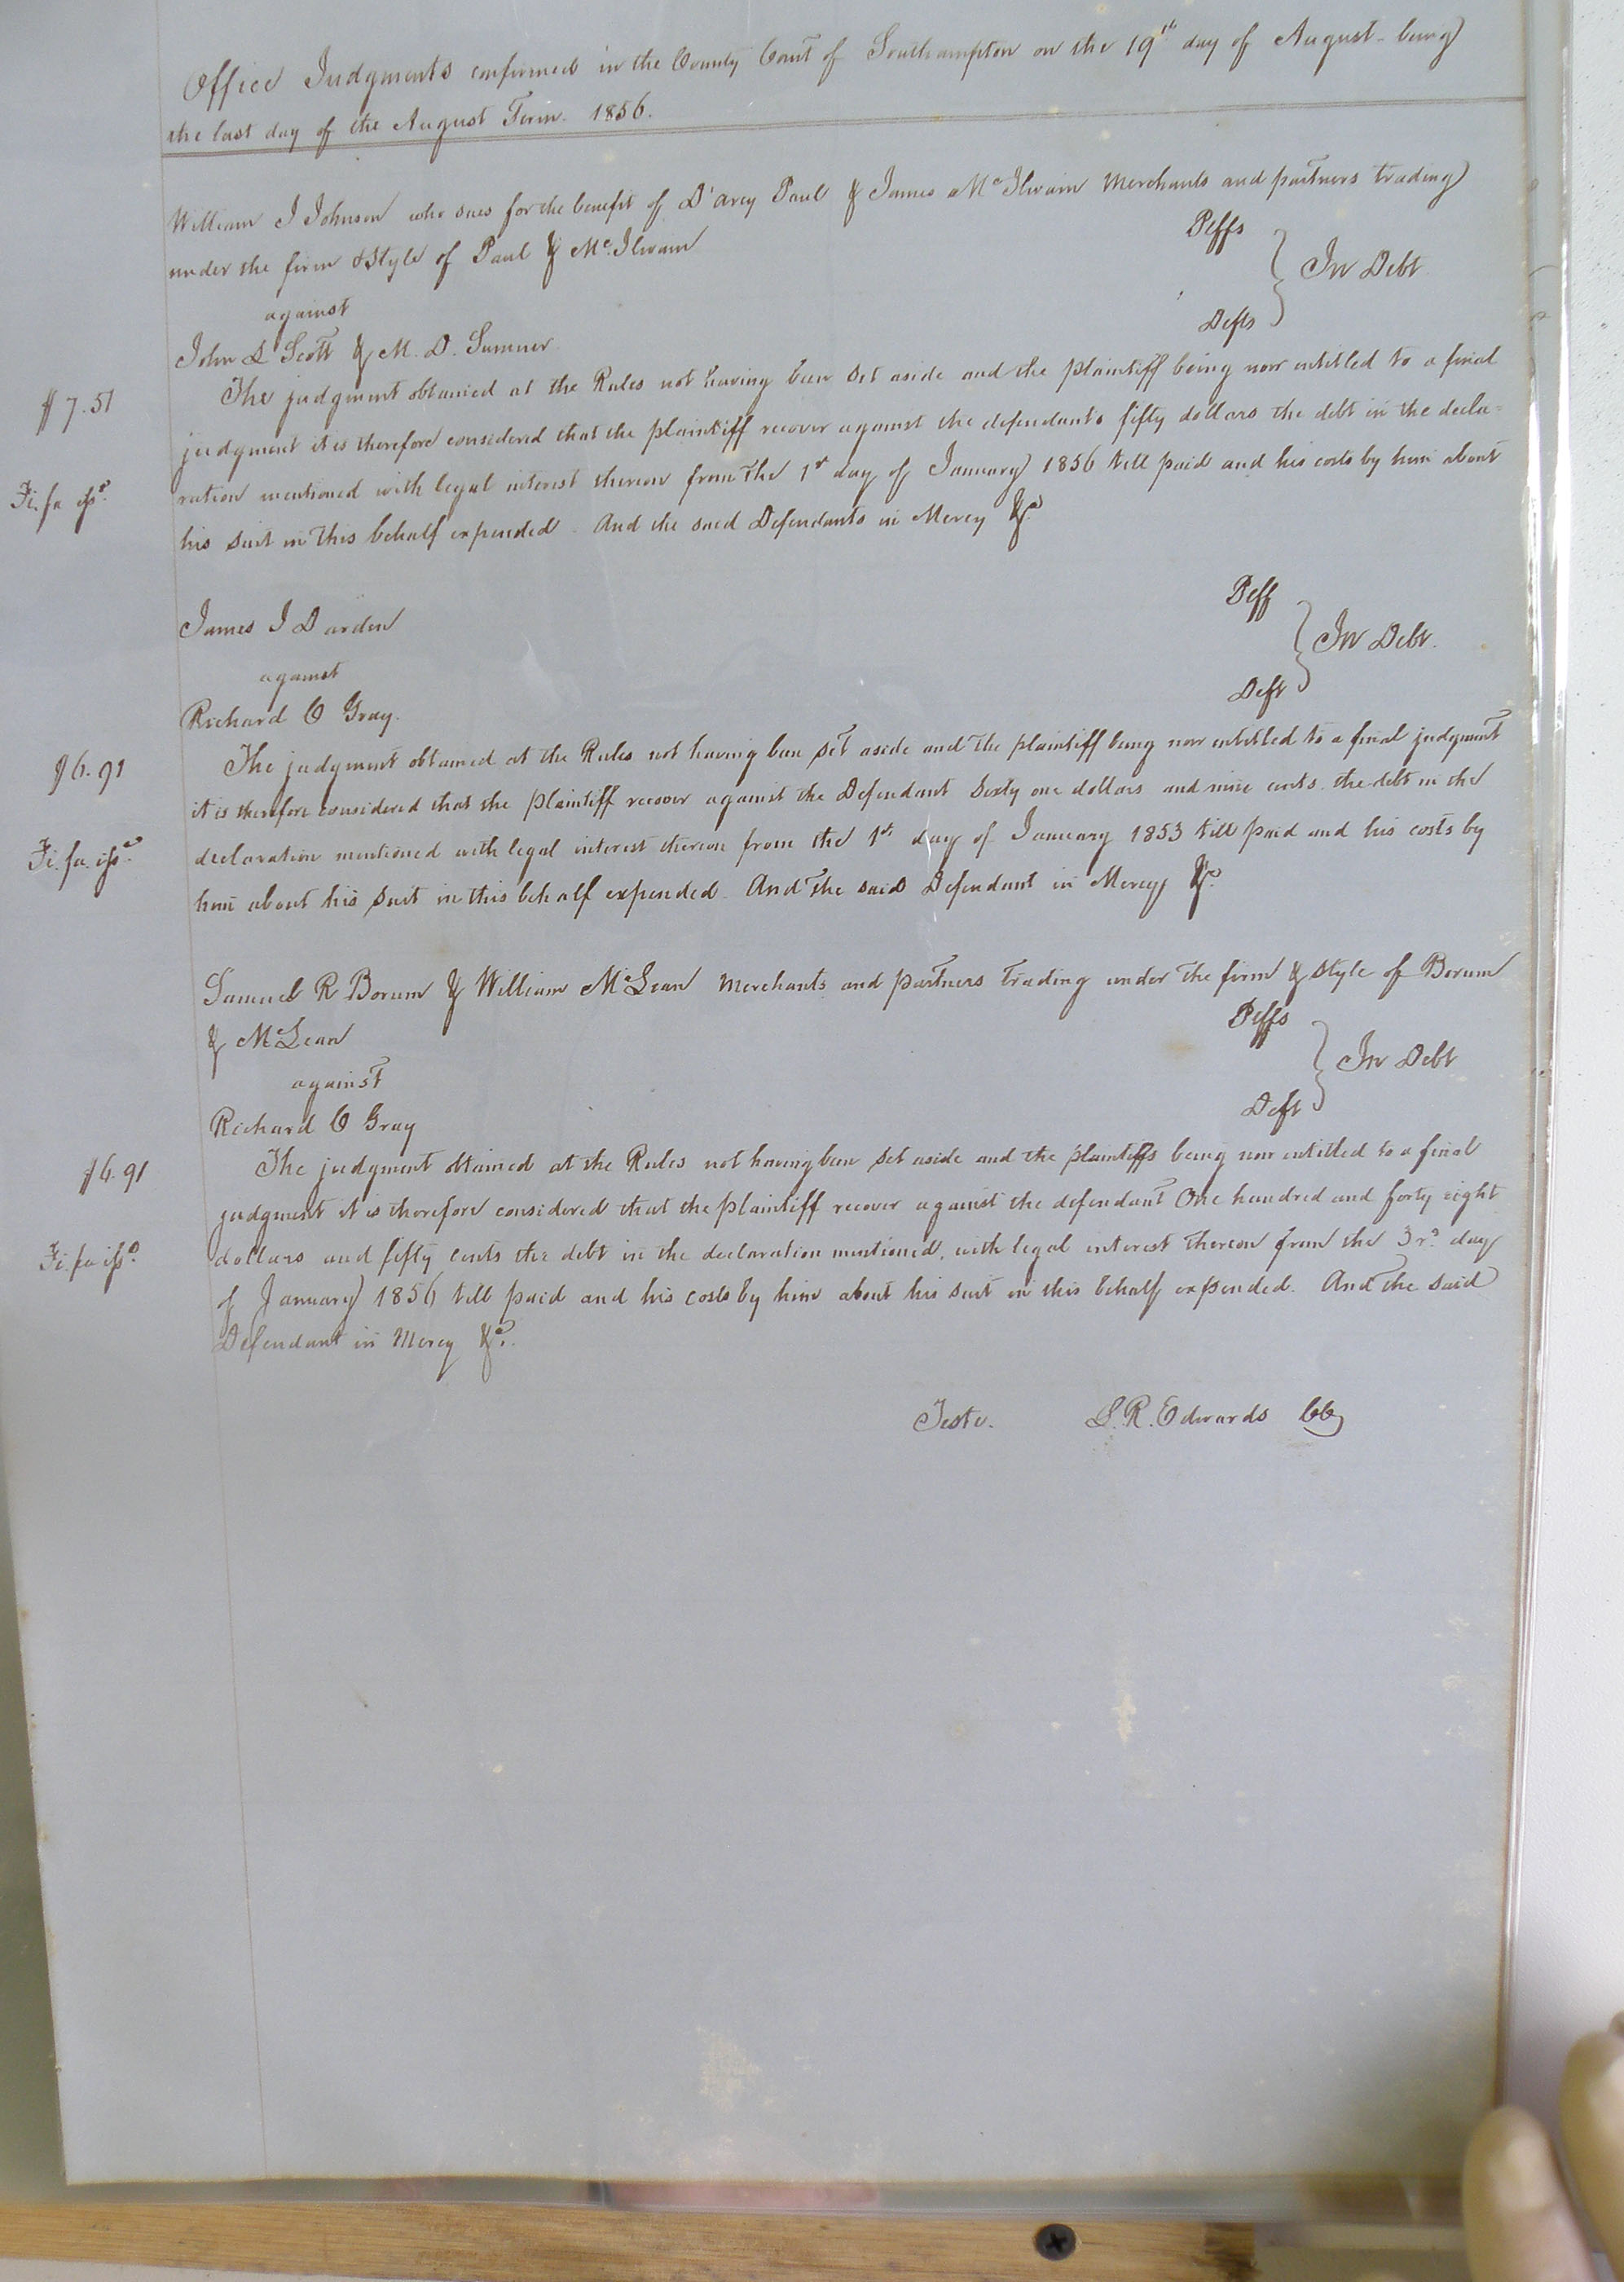 Office Judgments confirmed in the County Court of Southampton on the 19th day of August - being
the last day of the August Term. 1856.
William J Johnson who sues for the benefit of D'Arcy Paul & James McIlwain Merchants and partners trading
under the firm & Style of Paul & Mc.Ilwain Plffs
against In Debt
John L Scott & M. D. Sumner Defts
$7.51 The judgment obtained at the Rules not having been set aside and the plaintiff being now entitled to a final
judgment it is therefore considered that the plaintiff recover against the defendants fifty dollars the debt in the decla-
Fi. fa issd. ration mentioned with legal interest thereon from the 1st day of January 1856 till paid and his costs by him about
his suit in this behalf expended. And the said Defendants in Mercy &c.
James J Darden Plff
against In Debt.
Richard O Gray. Deft
$6.91 The judgment obtained at the Rules not having been set aside and the plaintiff being now entitled to a final judgment
it is therefore considered that the plaintiff recover against the Defendant Sixty one dollars and nine cents. the debt in the
Fi. fa. issd. declaration mentioned with legal interest thereon from the 1st day of January 1853 till paid and his costs by
him about his suit in this behalf expended. And the said Defendant in Mercy &c.
Samuel R Borum & William McLean Merchants and partners trading under the firm & style of Borum
& McLean Plffs
against In Debt
Richard O Gray Deft
$6.91 The judgment obtained at the Rules not having been set aside and the plaintiffs being now entitled to a final
judgment it is therefore considered that the plaintiff recover against the defendant One hundred and forty eight
Fi. fa issd. dollars and fifty cents the debt in the declaration mentioned, with legal interest thereon from the 3rd. day
of January 1856 till paid and his costs by him about his suit in this behalf expended. And the said
Defendant in Mercy &c.
Teste. L. R. Edwards CC